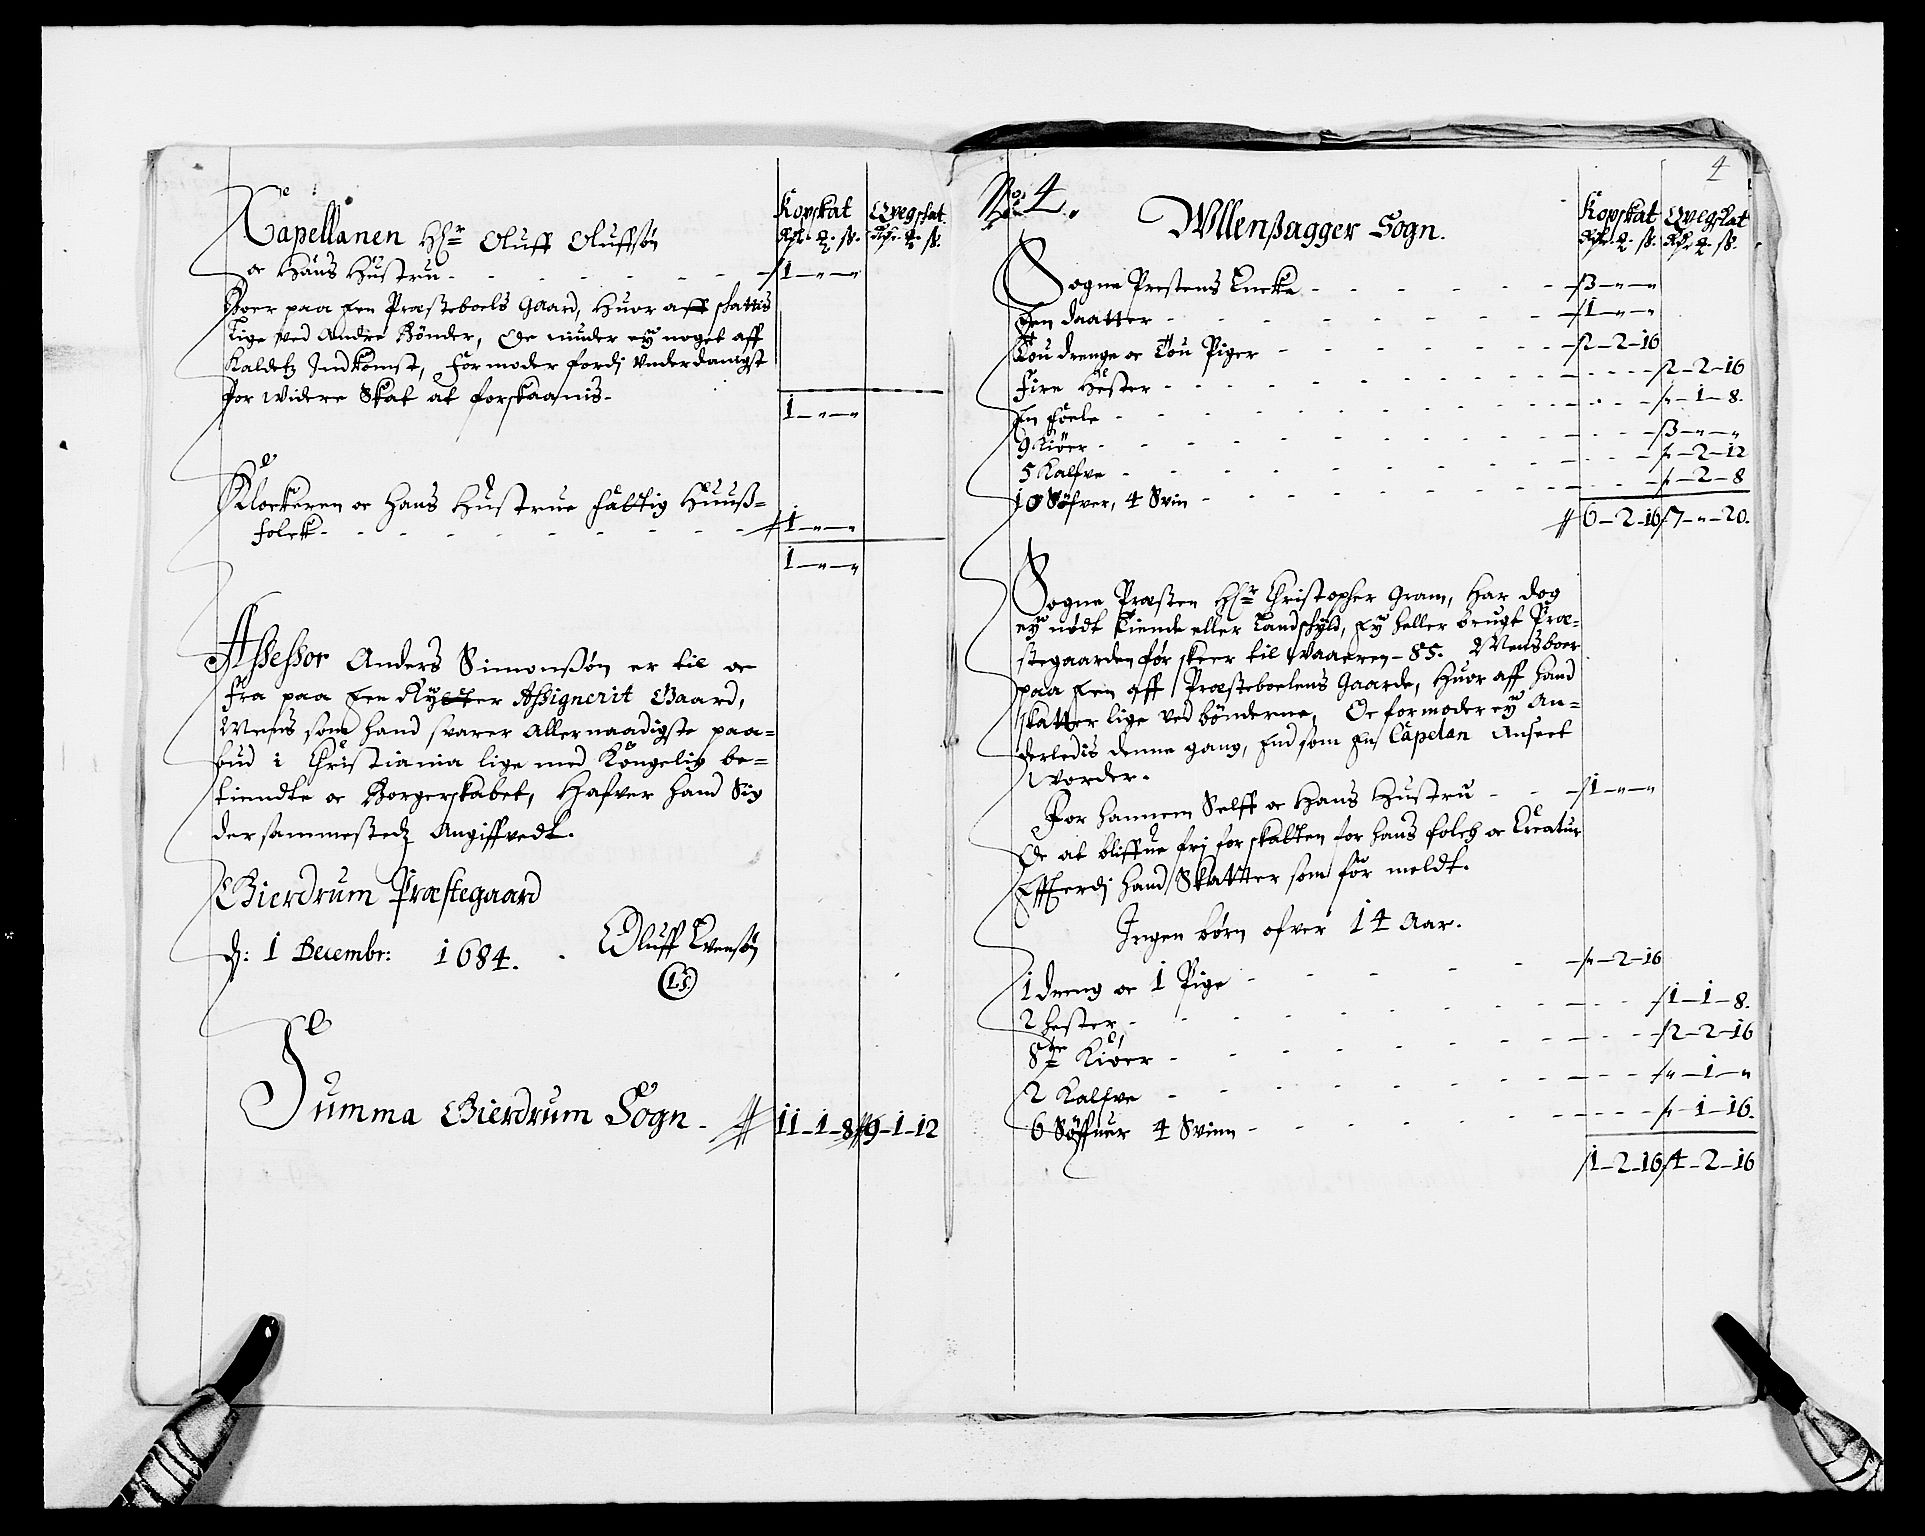 Kopskat Qvegskat
Rdr. q. ß. Rdr. q. ß.
Capellanen Hr Oluff Oluffsøn
oc Hans Hustru - - - - - 1 - „ - „
Boer paa Een Præsteboels Gaard, Huor aff skattis
Lige ved Andre Bønder, Oc niuder ey noget aff
Kaldetz Indkomst, Formoder fordj Underdanigst
for widere Skat at forskaanis.
1 - „ - „
Klockeren oc Hans Hustrue fattig Huuß=
folck - - - - - 1 - „ - „
1 - „ - „
Assessor Anders Simonßøn er til oc
fra paa Een Rytter Assignerit Gaard,
Mens som hand svarer Allernaadigste paa=
bud i Christiania lige med Kongelig be=
tiendte oc Borgerskabet, Hafver hand Sig
dersammestedz Angiffvedt.
Gierdrum Præstegaard
d: 1 Decembr: 1684. Oluff Evensøn
L S.
Summa Gierdrum Sogn - 11 - 1 - 8 9 - 1 - 12
4
No. 4.
Wllenßagger Sogn.
Kopskat Qvegskat
Rdr. q. ß. Rdr. q. ß.
Sogne Prestens Encke - - - - 3 - „ - „
Een daatter - - - - 1 - „ - „
Tou drenge oc Tou Piger - - - - 1 - 2 - 16
Fire Hester - - - - 2 - 2 - 16
En Foele - - - - „ - 1 - 8.
9 Kiöer - - - - 3 - „ - „
5 Kalfve - - - - „ - 2 - 12
10 Søfver, 4 Svin - - - - „ - 2 - 8
6 - 2 - 16 7 - „ - 20.
Sogne Præsten Hr Christopher Gram, Har dog
ey nødt Tiende eller Landskyld, Ey heller brugt Præ=
stegaarden før skeer til Waaren - 85. Mens boer
paa Een aff Præsteboelens Gaarde, Huor aff hand
skatter lige ved bønderne, Oc formoder ey An=
derledis denne gang, End som En Capelan Anseet
worder.
For hannem Selff oc Hans Hustru - - - 1 - „ - „
Oc at bliffue frj for skatten for hans folch oc Creatur
Effterdj hand Skatter som før meldt.
Ingen børn ofver 14 Aar.
1 dreng oc 1 Pige - - - - „ - 2 - 16
2 hester - - - - 1 - 1 - 8.
8te Kiøer - - - - 2 - 2 - 16
2 Kalfve - - - - „ - 1 - „
6 Søffuer 4 Sviin - - - - „ - 1 - 16.
1 - 2 - 16 4 - 2 - 16